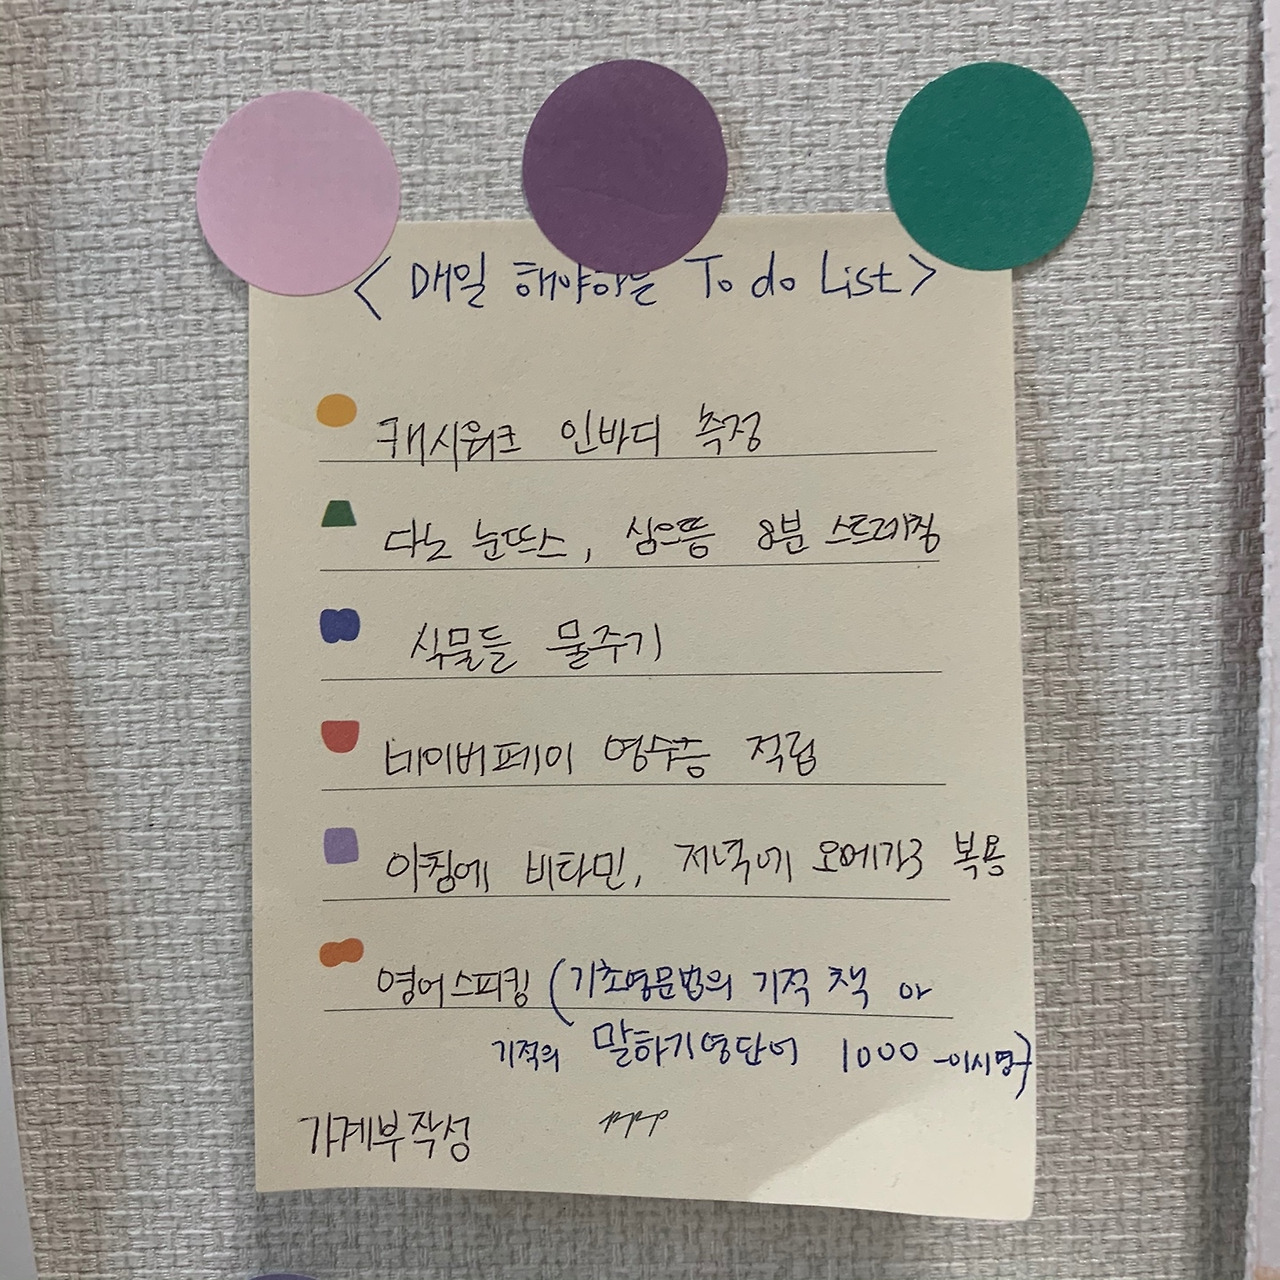 < 매일 해야하는 To do List >
캐시워크 인바디 측정
다노 눈뜨스, 심으뜸 8분 스트레칭
식물들 물주기
네이버페이 영수증 적립
아침에 비타민, 저녁에 오메가3 복용
영어스피킹 (기초영문법의 기적 책 or
기적의 말하기영단어 1000 -이시명)
가계부작성